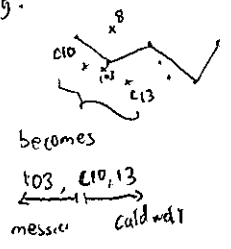 g.
8
C10
103
C13
becomes
103, C10, 13
messier Caldwell